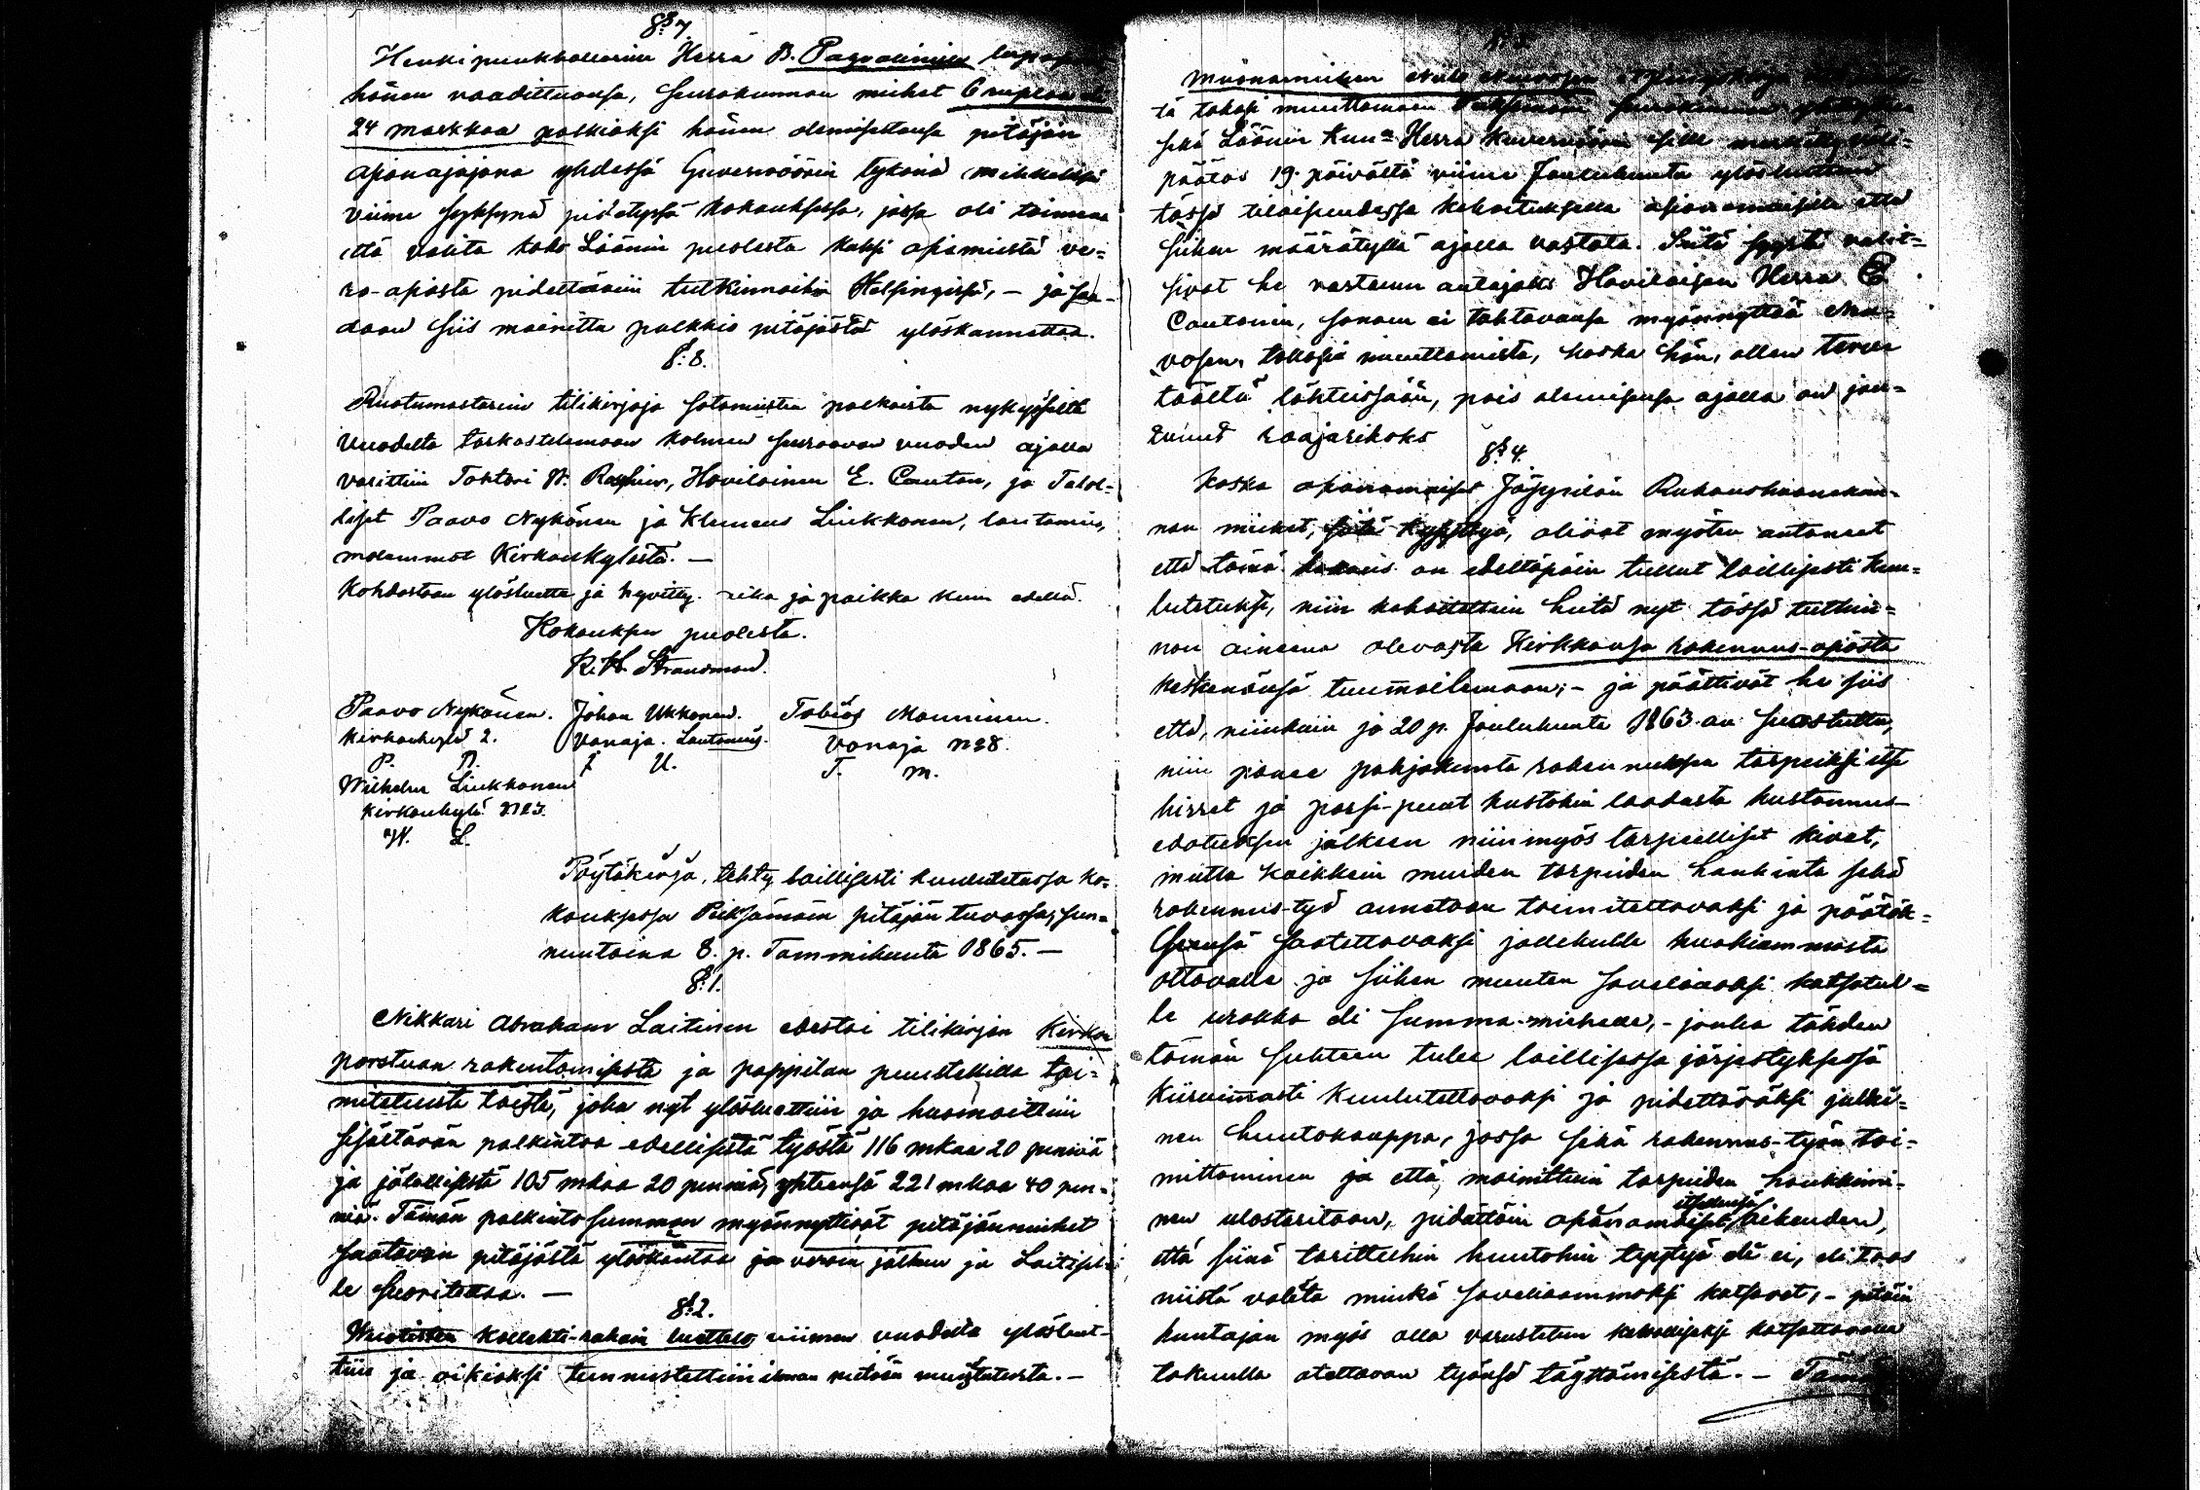 § 7.
Henkipuukhollarin Herra B. Pagvalinille
hänen vaadittuansa, Seurakunnan miehet 6 ruplaa eli
24 markkaa palkioksi hänen olemisestansa pitäjän
asianajajana yhdessä Guvernöörin tykönä Mikkelissä
viime syksynä pidetyssä kokouksessa, jossa oli toimena
että valita koko Läänin puolesta kaksi asiamiestä ve-
ro-asiasta pidettäviin tutkinnoihin Helsingissä, – ja saa-
daan siis mainittu palkkio pitäjästä ylöskannettaa.
§ 8.
Ruotumestarein tilikirjoja sotamiesten palkoista nykyiseltä
Vuodelta tarkastelemaan kolmen seuraavan vuoden ajalla
valittiin Tohtori W. Hovilainen E. Canton, ja Talol-
liset Paavo Nykänen ja Klemens Liukkonen, lautamies,
molemmat Kirkonkylästä. –
Kohdastaan ylösluettu ja hyvitty. aika ja paikka kuin edellä.
Kokouksen puolesta.
K. H. Strandman.
Paavo Nykänen. Johan Ukkonen. Tobias Manninen.
Kirkonkylä 2. Vanaja. Lautamies. Vanaja N:o 8.
P. N. J. U. T. M.
Wilhelm Liukkonen
Kirkonkylä N:o 3.
W. L.
Pöytäkirja, tehty laillisesti kuulutetussa ko-
kouksessa Pieksämäen pitäjän tuvassa, sun-
nuntaina 8. p. Tammikuuta 1865. –
§ 1.
Nikkari Abraham Laitinen edestoi tilikirjan Kirkon
porstuan rakentamisesta ja pappilan puustellilla toi-
mitetuista töistä, joka nyt ylösluettiin ja huomaittiin
sisältävän palkintoa edellisestä työstä 116 mkaa 20 penniä
ja jälellisestä 105 mkaa 20 penniä, yhteensä 221 mkaa 40 pen-
niä. Tämän palkintosumman myönnyttivät pitäjänmiehet
saatavan pitäjästä ylöskantaa ja veron jälkeen ja Laitisel-
le suoritettaa. –
§ 2.
Wuotisten Kollehti-rahain luettelo viimen vuodelta ylösluet-
tiin ja oikiaksi tunnustettiin ilman mitään muistutusta. –
Muonamiehen Nils
tä takasi muuttamaan Pieksämäen Seurakunnan
sekä Läänin Kuvernöörin
päätös 19. päivältä viime Joulukuuta ylösluettiin
tässä tilaisuudessa kehoituksella asianomaisille että
siihen määrätyllä ajalla vastata. Siitä syystä valit-
sivat he vastauksen antajaksi Hovilaisen Herra E.
Cantonin, sanoen ei tahtovansa myönnyttää Nou-
vosen, takasin muuttamista, koska hän, ollen terve
täältä lähteissään, pois olemisensa ajalla on jou-
tunut raajarikoks
§ 4.
Koska asianomaiset Jäppilän Rukoushuonekun-
nan miehet, olivat myöten antaneet
että tämä on edeltäpäin tullut laillisesti kuu-
lutetuksi, niin kehoitettiin heitä nyt tässä tutkin-
non aineena olevasta Kirkkonsa rakennus-asiasta
keskenänsä tuumailemaan; – ja päättivät he siis
että, niinkuin jo 20 p. Joulukuuta 1863 on suostuttu,
niin panee pohjakunta rakennuksen tarpeiksi itse
hirret ja parsi-puut kustakin laadusta kustannus-
edotuksen jälkeen niin myös tarpeelliset kivet,
mutta kaikkein muiden tarpeiden hankinta sekä
rakennus-työ annetaan toimitettavaksi ja päätök-
seensä saatettavaksi jollekulle huokiammasta
ottavalle ja siihen muuten soveliaaksi katsotul-
le urakka eli summa-miehelle, – jonka tähden
tämän suhteen tulee laillisessa järjestyksessä
kiirummasti kuulutettavaksi ja pidettäväksi julki-
nen huutokauppa, jossa sekä rakennus-työn toi-
mittaminen ja että, mainittuin tarpeiden hankkimi-
nen ulostaritaan, pidättäin asianomaiset itsellensä oikeuden,
että siinä tarittuihin huutoihin tyytyä eli ei, eli taas
niistä valita minkä soveliaammaksi katsovat, – pitäin
huutajan myös olla varustetun kelvolliseksi katsottavalla
takuulla otettavan työnsä täyttämisestä. –